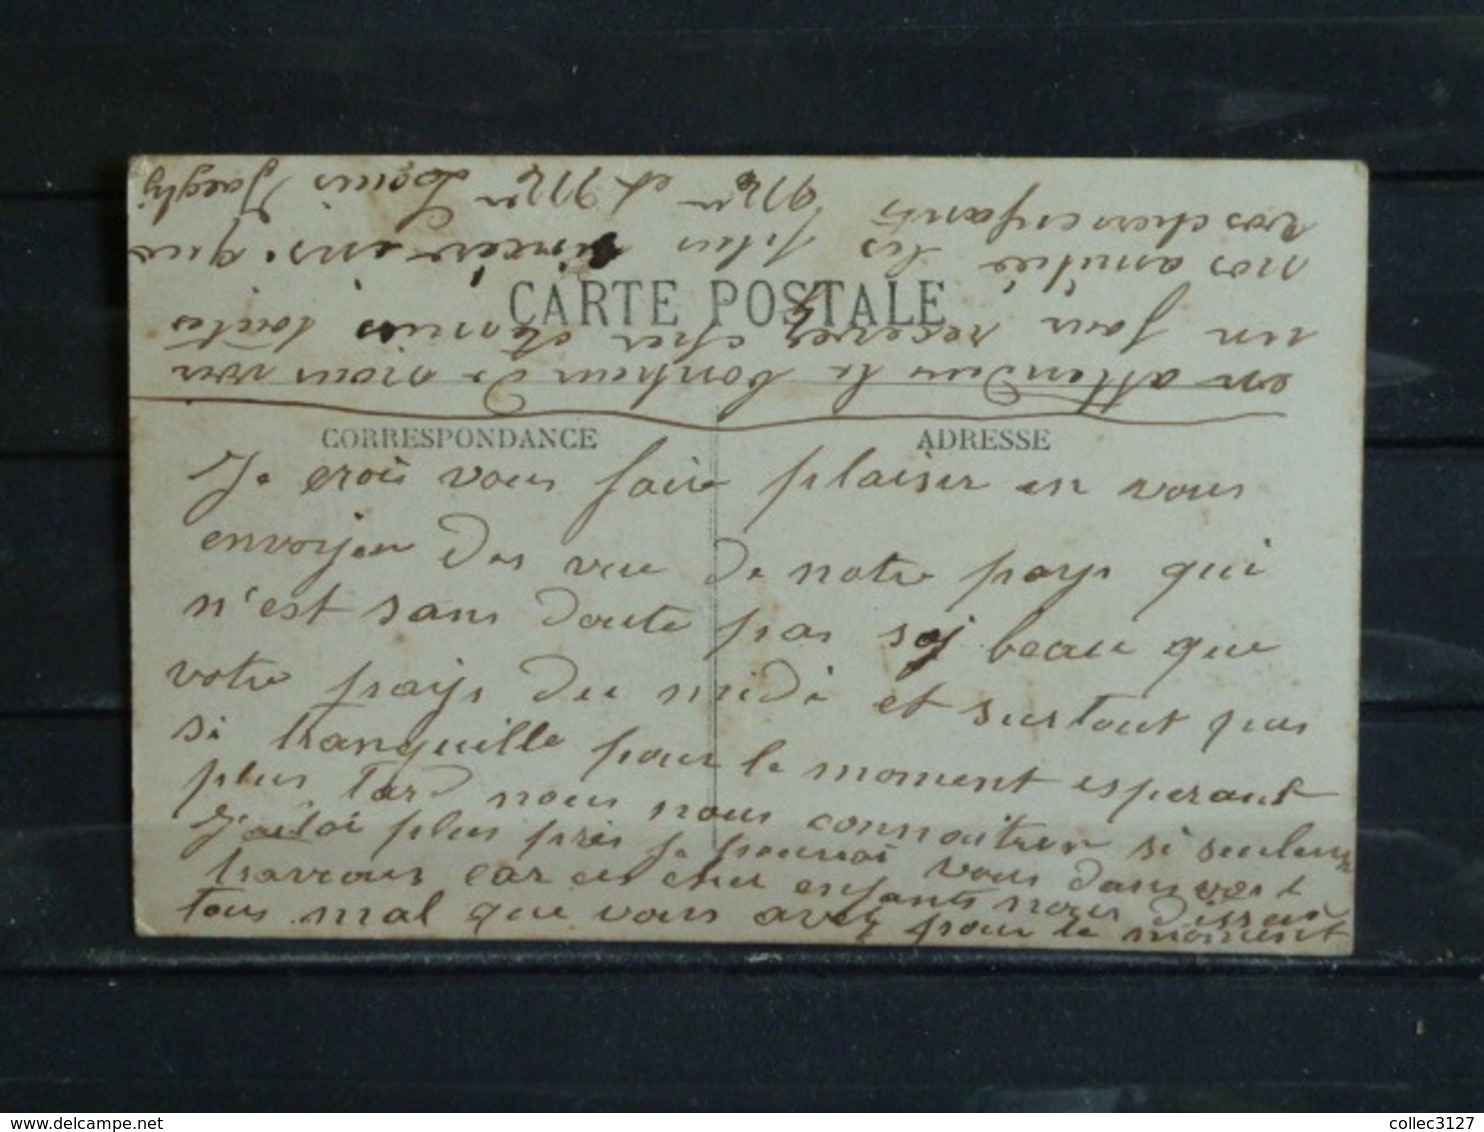 CARTE POSTALE
CORRESPONDANCE
ADRESSE
Je crois vous faire plaisir en vous
envoyen des vue de notre pays qui
n'est sans doute pas si beau que
votre pays du midi et surtout pas
si tranquille pour le moment esperant
plus tard nous nous connaitrer si seulement
plus près je pourrai vous dans vos
travaux car ces cher enfants nous disent
tous mal que vous avez pour le moment
en attendent le bonheur de nous voir
un jour recevez cher et amis toutes
nos amitiés les plus sincères ins. que
vos chers enfants Mr et Mme Louis Jaegly
collec3127